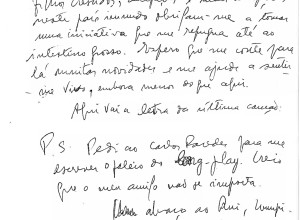 neste país imundo obrigam-me a tomar
uma iniciativa que me repugna até ao
intestino grosso. Espero que me conte para
lá muitas novidades e me ajude a sentir-
-me vivo, embora menos do que aqui.
Aqui vai a letra da última canção.
P.S. Pedi ao Carlos Paredes para me
escrever o paleio do long-play. Creio
que o meu amigo não se importa.
abraço ao Rui,